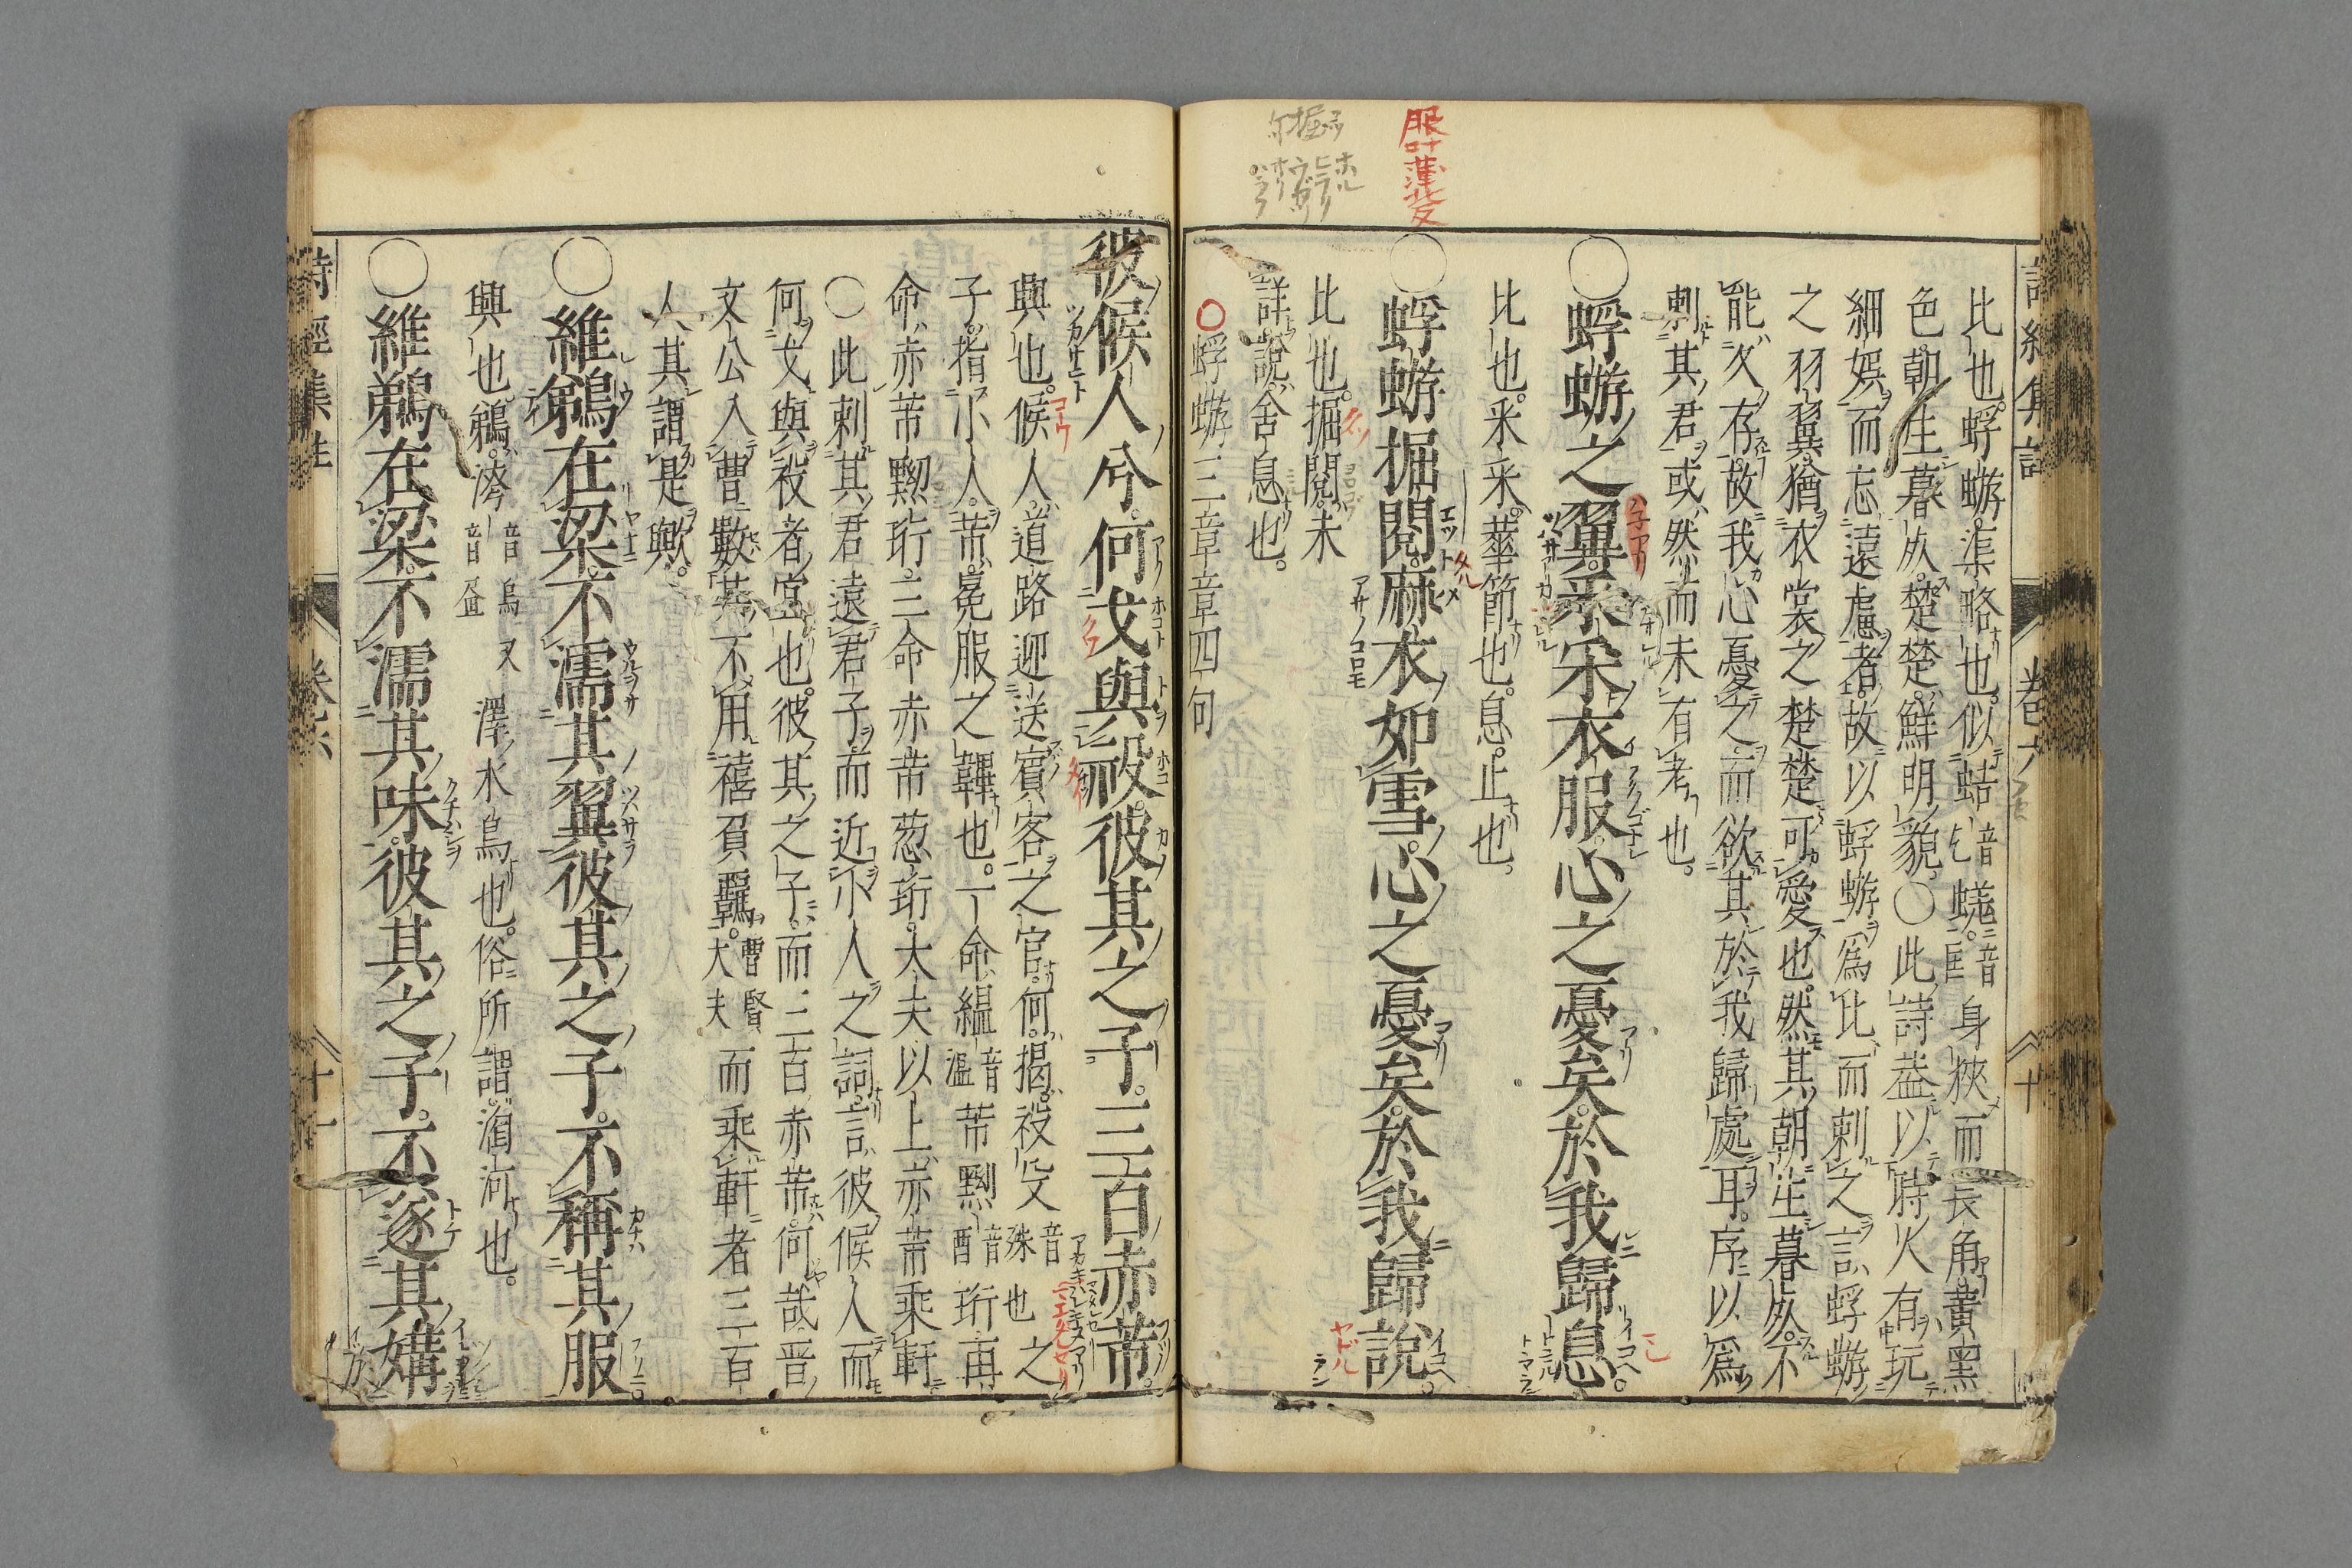 服叶蒲北反
比也。蜉蝣。渠略也。似蛣音乞蜣。音羌身狹而長角。黃黑
色。朝生暮死。楚楚。鮮明貌。〇此詩蓋以時人有玩
細娛而忘遠慮者。故以蜉蝣爲比而刺之。言蜉蝣
之羽翼。猶衣裳之楚楚可愛也。然其朝生暮死。不
能久存。故我心憂之。而欲其於我歸處耳。序以爲
刺其君。或然而未有考也。
〇蜉蝣之翼。采采衣服。心之憂矣。於我歸息。
比也。采采。華飾也。息。止也。
〇蜉蝣掘閱。麻衣如雪。心之憂矣。於我歸說。
比也。掘閱。未
詳。說。舍息也。
蜉蝣三章章四句
彼候人兮。何戈與祋。彼其之子。三百赤芾。
興也。候人。道路迎送賓客之官。何。揭。祋。殳音殊也。之
子。指小人。芾。冕服之韠也。一命縕音溫芾黝音酉珩。再
命赤芾黝珩。三命赤芾葱珩。大夫以上。赤芾乘軒
〇此刺其君遠君子而近小人之詞。言彼候人而
何戈與祋者宜也。彼其之子。而三百赤芾何哉。晉
文公入曹。數其不用僖負羈。曹賢大夫而乘軒者三百
人。其謂是歟。
〇維鵜在梁。不濡其翼。彼其之子。不稱其服。
興也。鵜。洿音烏又音㿻澤水鳥也。俗所謂淘河也。
〇維鵜在梁。不濡其咮。彼其之子。不遂其媾。
詩經集註 卷六 十一